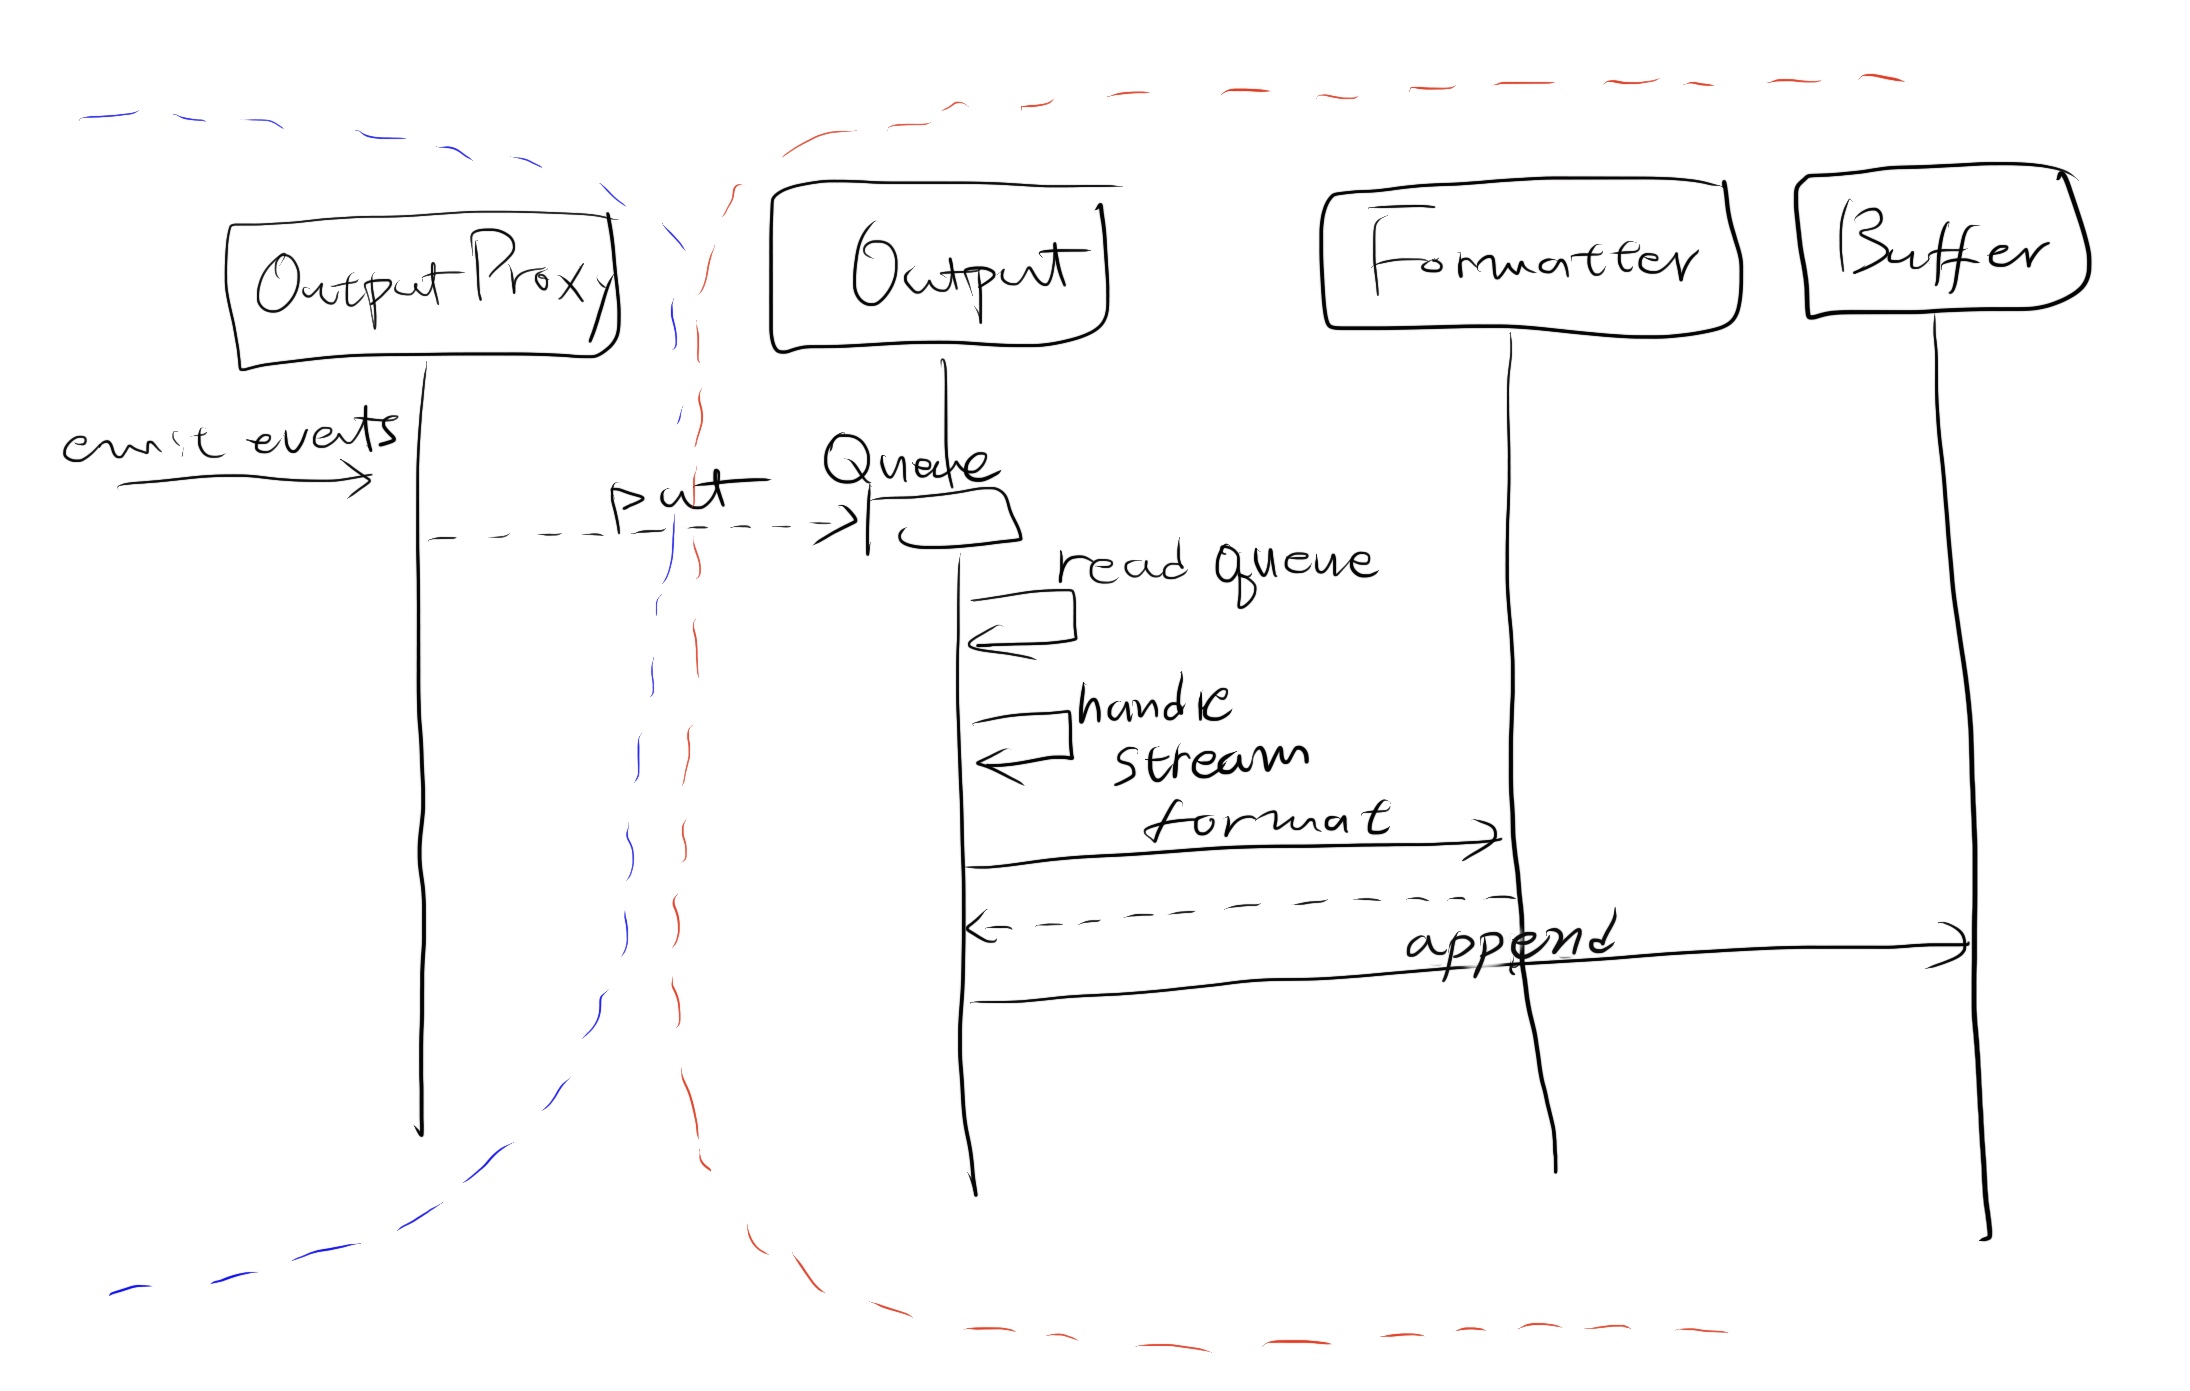 OutputProxy
Output
Formatter
Buffer
emit events
Queue
put
read queue
handle
stream
format
append